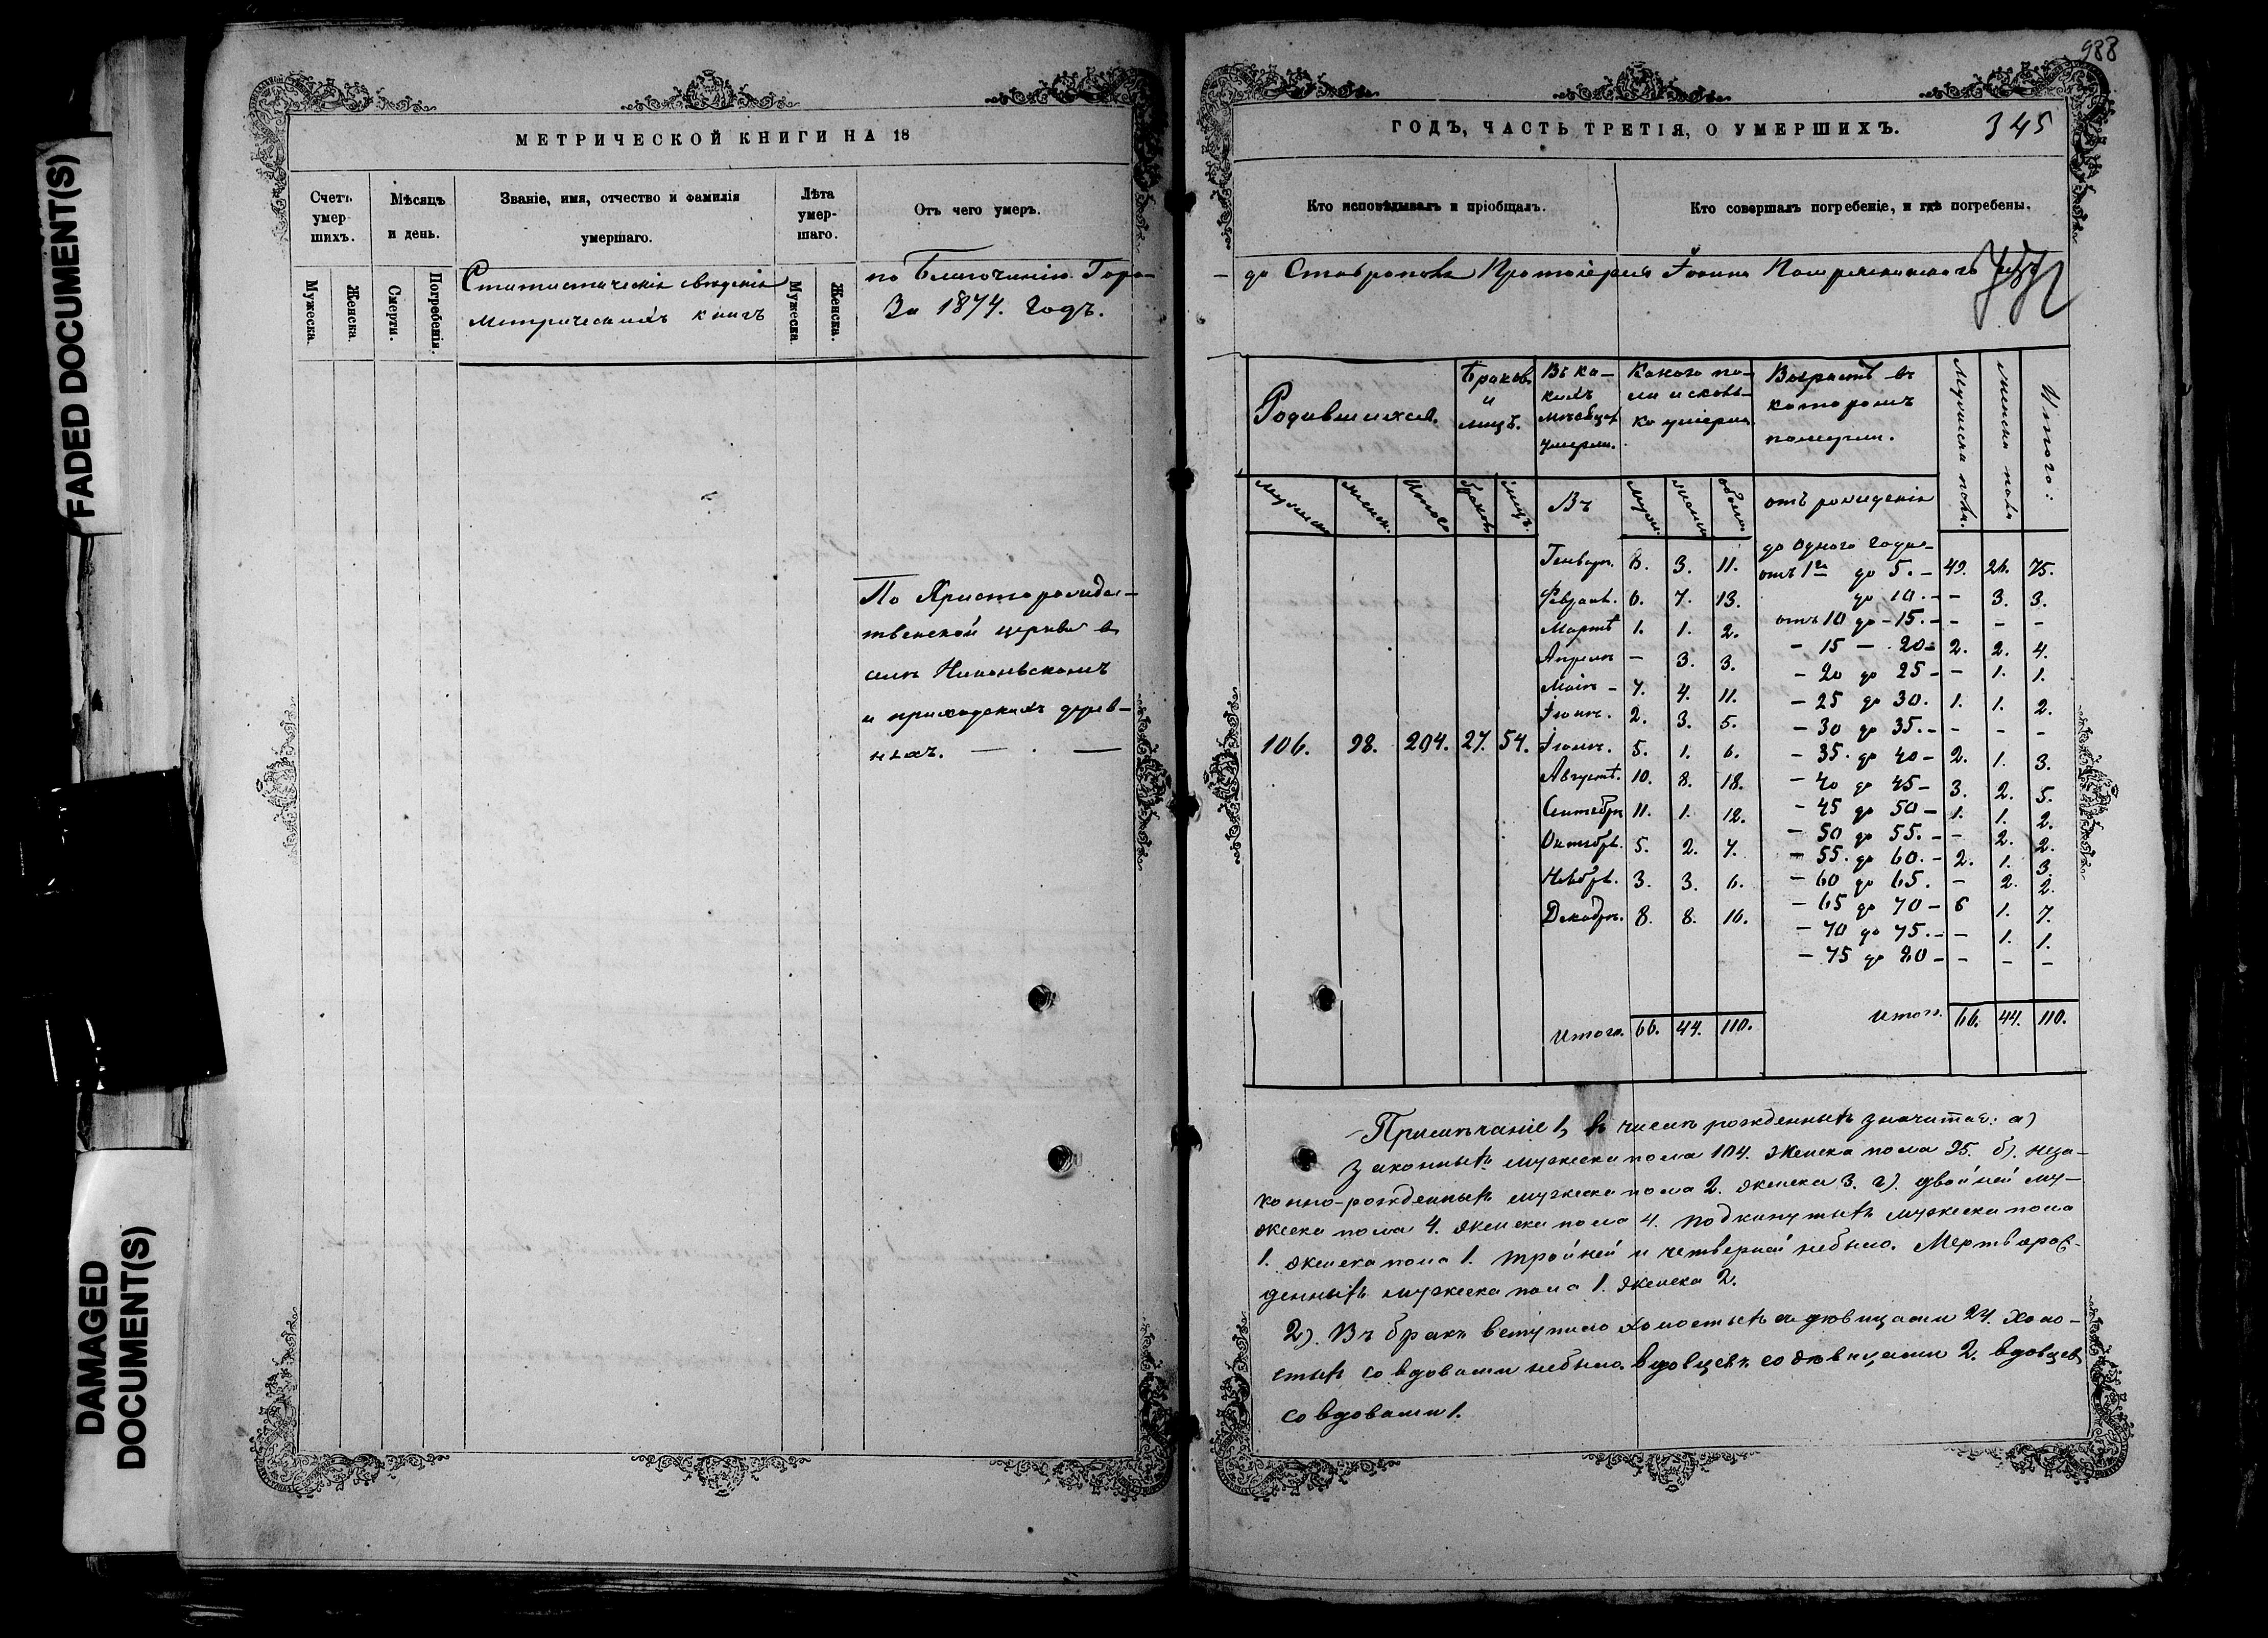 FADED DOCUMENT(S)
DAMAGED
DOCUMENT(S)
МЕТРИЧЕСКОЙ КНИГИ НА 18
Счетъ умер-шихъ.
Мѣсяцъ и день.
Званіе, имя, отчество и фамилія умершаго.
Лѣта умер-шаго.
Отъ чего умеръ.
Мужеска.
Женска.
Смерти.
Погребенія.
Мужеска.
Женска.
Статистическія свѣденія
метрическихъ книгъ
по Благочинію Горо-
За 1874. Годъ.
По Христорождес-
твенской церкви въ
селѣ Никольскомъ
и приходскихъ дерев-
няхъ.
988
ГОДЪ, ЧАСТЬ ТРЕТІЯ, О УМЕРШИХЪ.
345
Кто исповѣдывалъ и пріобщалъ.
Кто совершалъ погребеніе, и гдѣ погребены.
да Ставрополя Протоіерея Іоанна
Родившихся.
Браковъ и лицъ.
Въ ка-кихъ мѣсяцахъ умерли.
Какого по-ла и сколь-ко умерло.
Возрастъ въ котором померли.
Мужеска пола.
Женска пола
Итого:
мужеска
женск.
Итого
браков
лицъ.
Въ
муж.
женск
обоего
отъ рожденія
до одного года-
Генваръ. 8. 3. 11. отъ 1го до 5. - 49. 26. 75.
Феврал. 6. 7. 13. до 10. - - 3. 3.
Мартѣ 1. 1. 2. отъ 10 до - 15. - - - -
Апрелѣ - 3. 3. - 15 - 20 - 2. 2. 4.
Маіѣ - 7. 4. 11. - 20 до 25 - - 1. 1.
Іюнѣ. 2. 3. 5. - 25 до 30. 1. 1. 2.
- 30 до 35. - - - -
106. 98. 204. 27. 54. Іюлѣ. 5. 1. 6. - 35. до 40 - 2. 1. 3.
Августѣ. 10. 8. 18. - 40 до 45 - 3. 2. 5.
Сентябрѣ 11. 1. 12. - 45 до 50 - 1. 1. 2.
- 50 до 55. - - 2. 2.
Октябрѣ. 5. 2. 7. - 55. до 60. - 2. 1. 3.
Ноябрѣ. 3. 3. 6. - 60 до 65. - 2. 2.
Декабрѣ. 8. 8. 16. - 65 до 70 - 6 1. 7.
- 70 до 75. - - 1. 1.
- 75 до 80 - - - -
Итого. 66. 44. 110. Итого. 66. 44. 110.
Примѣчаніе 1, въ числѣ рожденныхъ значится: а)
законныхъ мужеска пола 104. женска пола 95. б). неза-
конно-рожденныхъ мужеска пола 2. женска 3. г). двойней му-
жеска пола 4. женска пола 4. подкинутыхъ мужеска пола
1. женска пола 1. тройней и четверней небыло. Мертворож-
денныхъ мужеска пола 1. женска 2.
2). Въ бракъ вступило холостыхъ съ дѣвицами 24. холо-
стыхъ со вдовами небыло. вдовцевъ со дѣвицами 2. вдовцевъ
со вдовами 1.